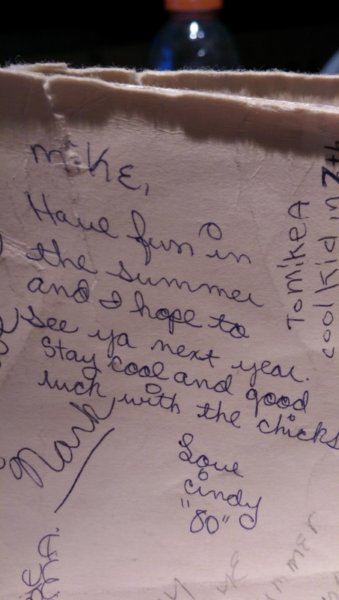 Mike,
Have fun in
the summer
and I hope to
see ya next year.
Stay cool and good
luck with the chicks
Love
Cindy
"80"
Mark
To mike A
cool kid in 7th